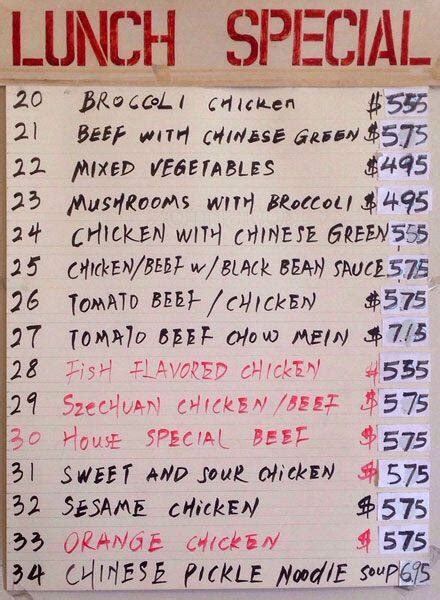 LUNCH SPECIAL
20 BROCCOLI CHICKEN $ 555
21 BEEF WITH CHINESE GREEN $ 575
22 MIXED VEGETABLES $ 495
23 MUSHROOMS WITH BROCCOLI $ 495
24 CHICKEN WITH CHINESE GREEN 555
25 CHICKEN/BEEF W/BLACK BEAN SAUCE 575
26 TOMATO BEEF/CHICKEN $ 575
27 TOMATO BEEF CHOW MEIN $ 715
28 FISH FLAVORED CHICKEN $ 555
29 SZECHUAN CHICKEN/BEEF $ 575
30 HOUSE SPECIAL BEEF $ 575
31 SWEET AND SOUR CHICKEN $ 575
32 SESAME CHICKEN $ 575
33 ORANGE CHICKEN $ 575
34 CHINESE PICKLE NOODLE SOUP 695